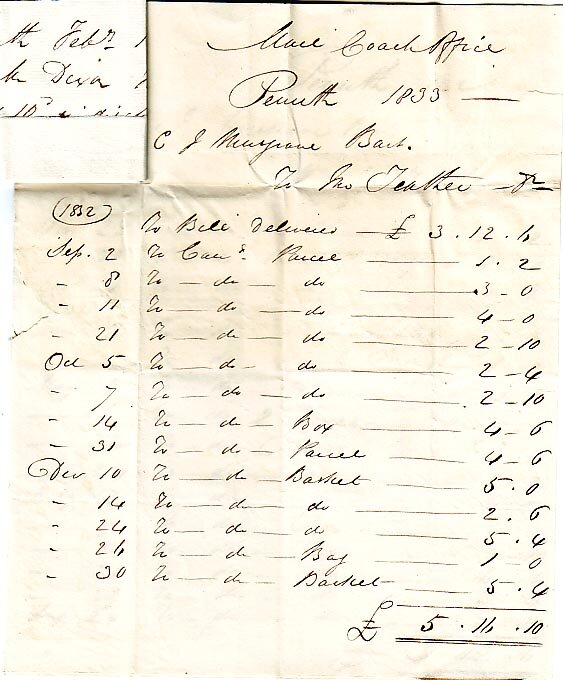 th Febry 1
Dixon
Mail Coach Office
Penrith 1833 —
C J Musgrave Bart.
To Jno Teather Dr
1832
To Bill delivered — £ 3 . 12 . 6
Sep. 2 To Carr. Parcel — 1 . 2
" 8 To — do — do — 3 – 0
" 11 To — do — do — 4 – 0
" 21 To — do — do — 2 – 10
Oct 5 To — do — do — 2 – 4
" 7 To — do — do — 2 – 10
" 14 To — do — Box — 4 – 6
" 31 To — do — Parcel — 4 – 6
Decr 10 To — do — Basket — 5 . 0
" 14 To — do — do — 2 . 6
" 24 To — do — do — 5 . 4
" 26 To — do — Bag — 1 – 0
" 30 To — do — Basket — 5 . 4
£ 5 . 16 . 10